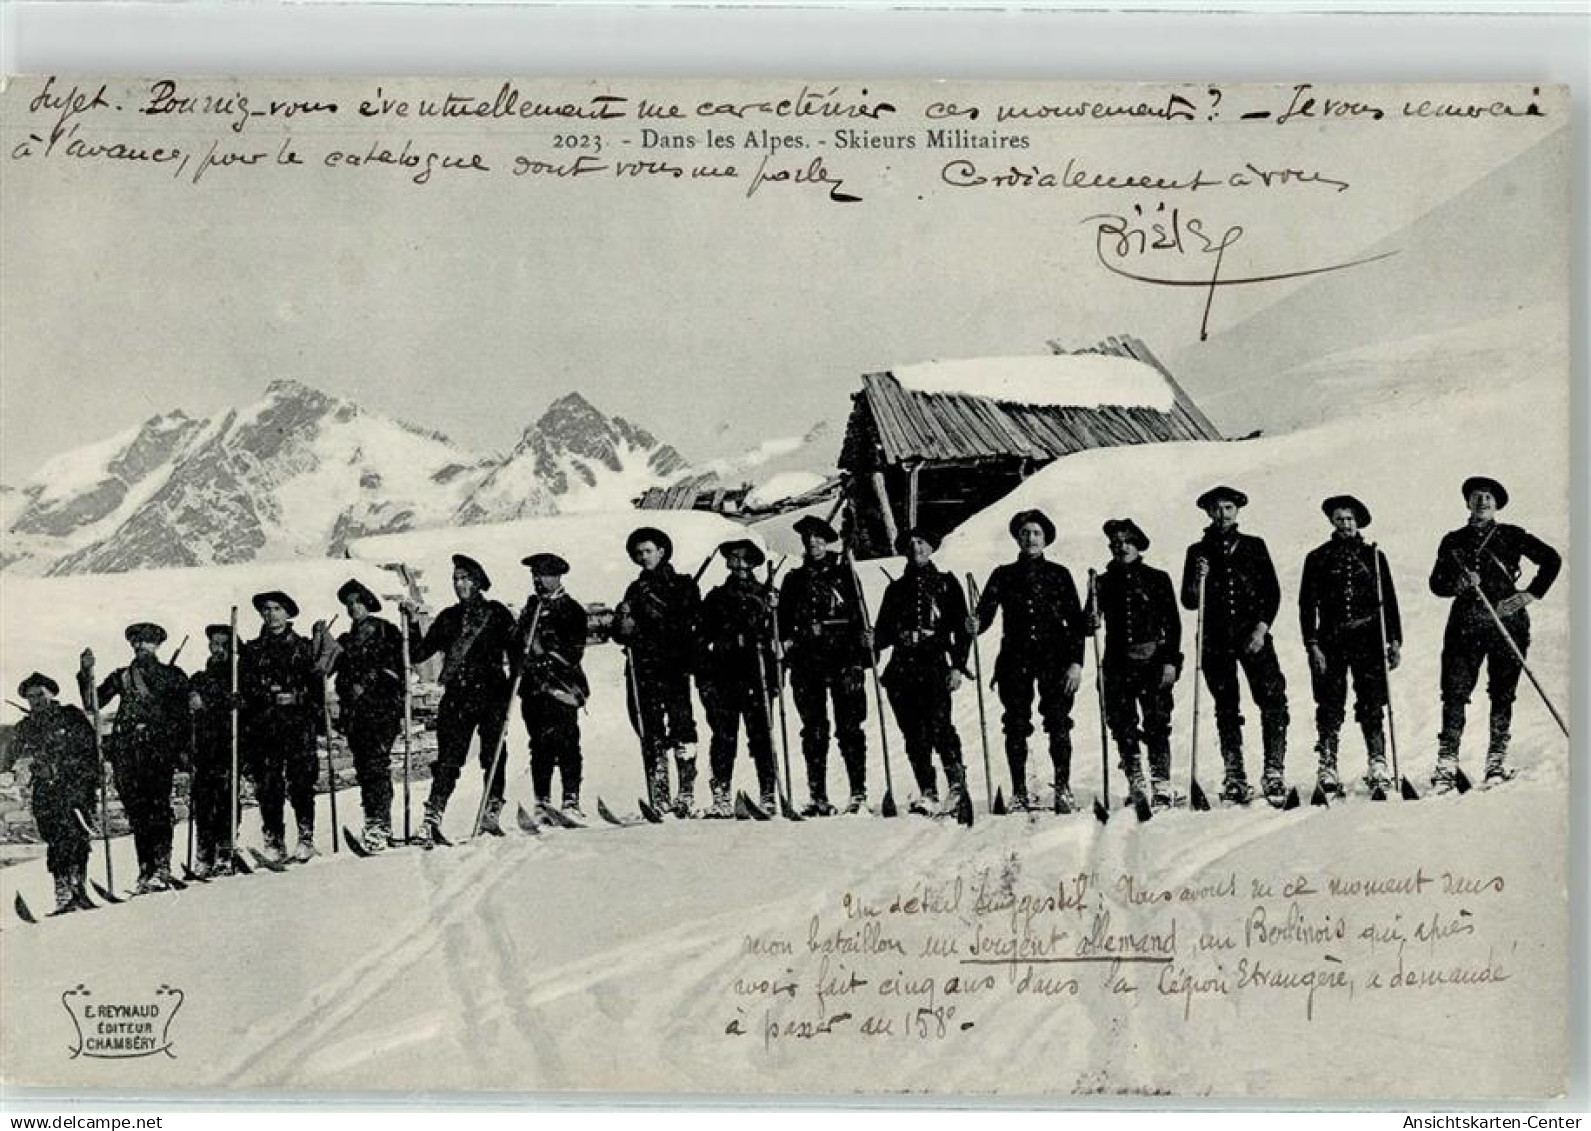 Sujet. Pourriez-vous éventuellement me caractériser ces mouvements ? - Je vous remercie
2023 - Dans les Alpes. - Skieurs Militaires
à l'avance, pour le catalogue dont vous me parlez. Cordialement à vous
Un détail "suggestif": Nous avons en ce moment dans
mon bataillon un Sergent allemand, un Berlinois qui, après
avoir fait cinq ans dans la Légion Etrangère, a demandé
à passer au 158e.
E. REYNAUD
ÉDITEUR
CHAMBÉRY
delcampe.net
Ansichtskarten-Center